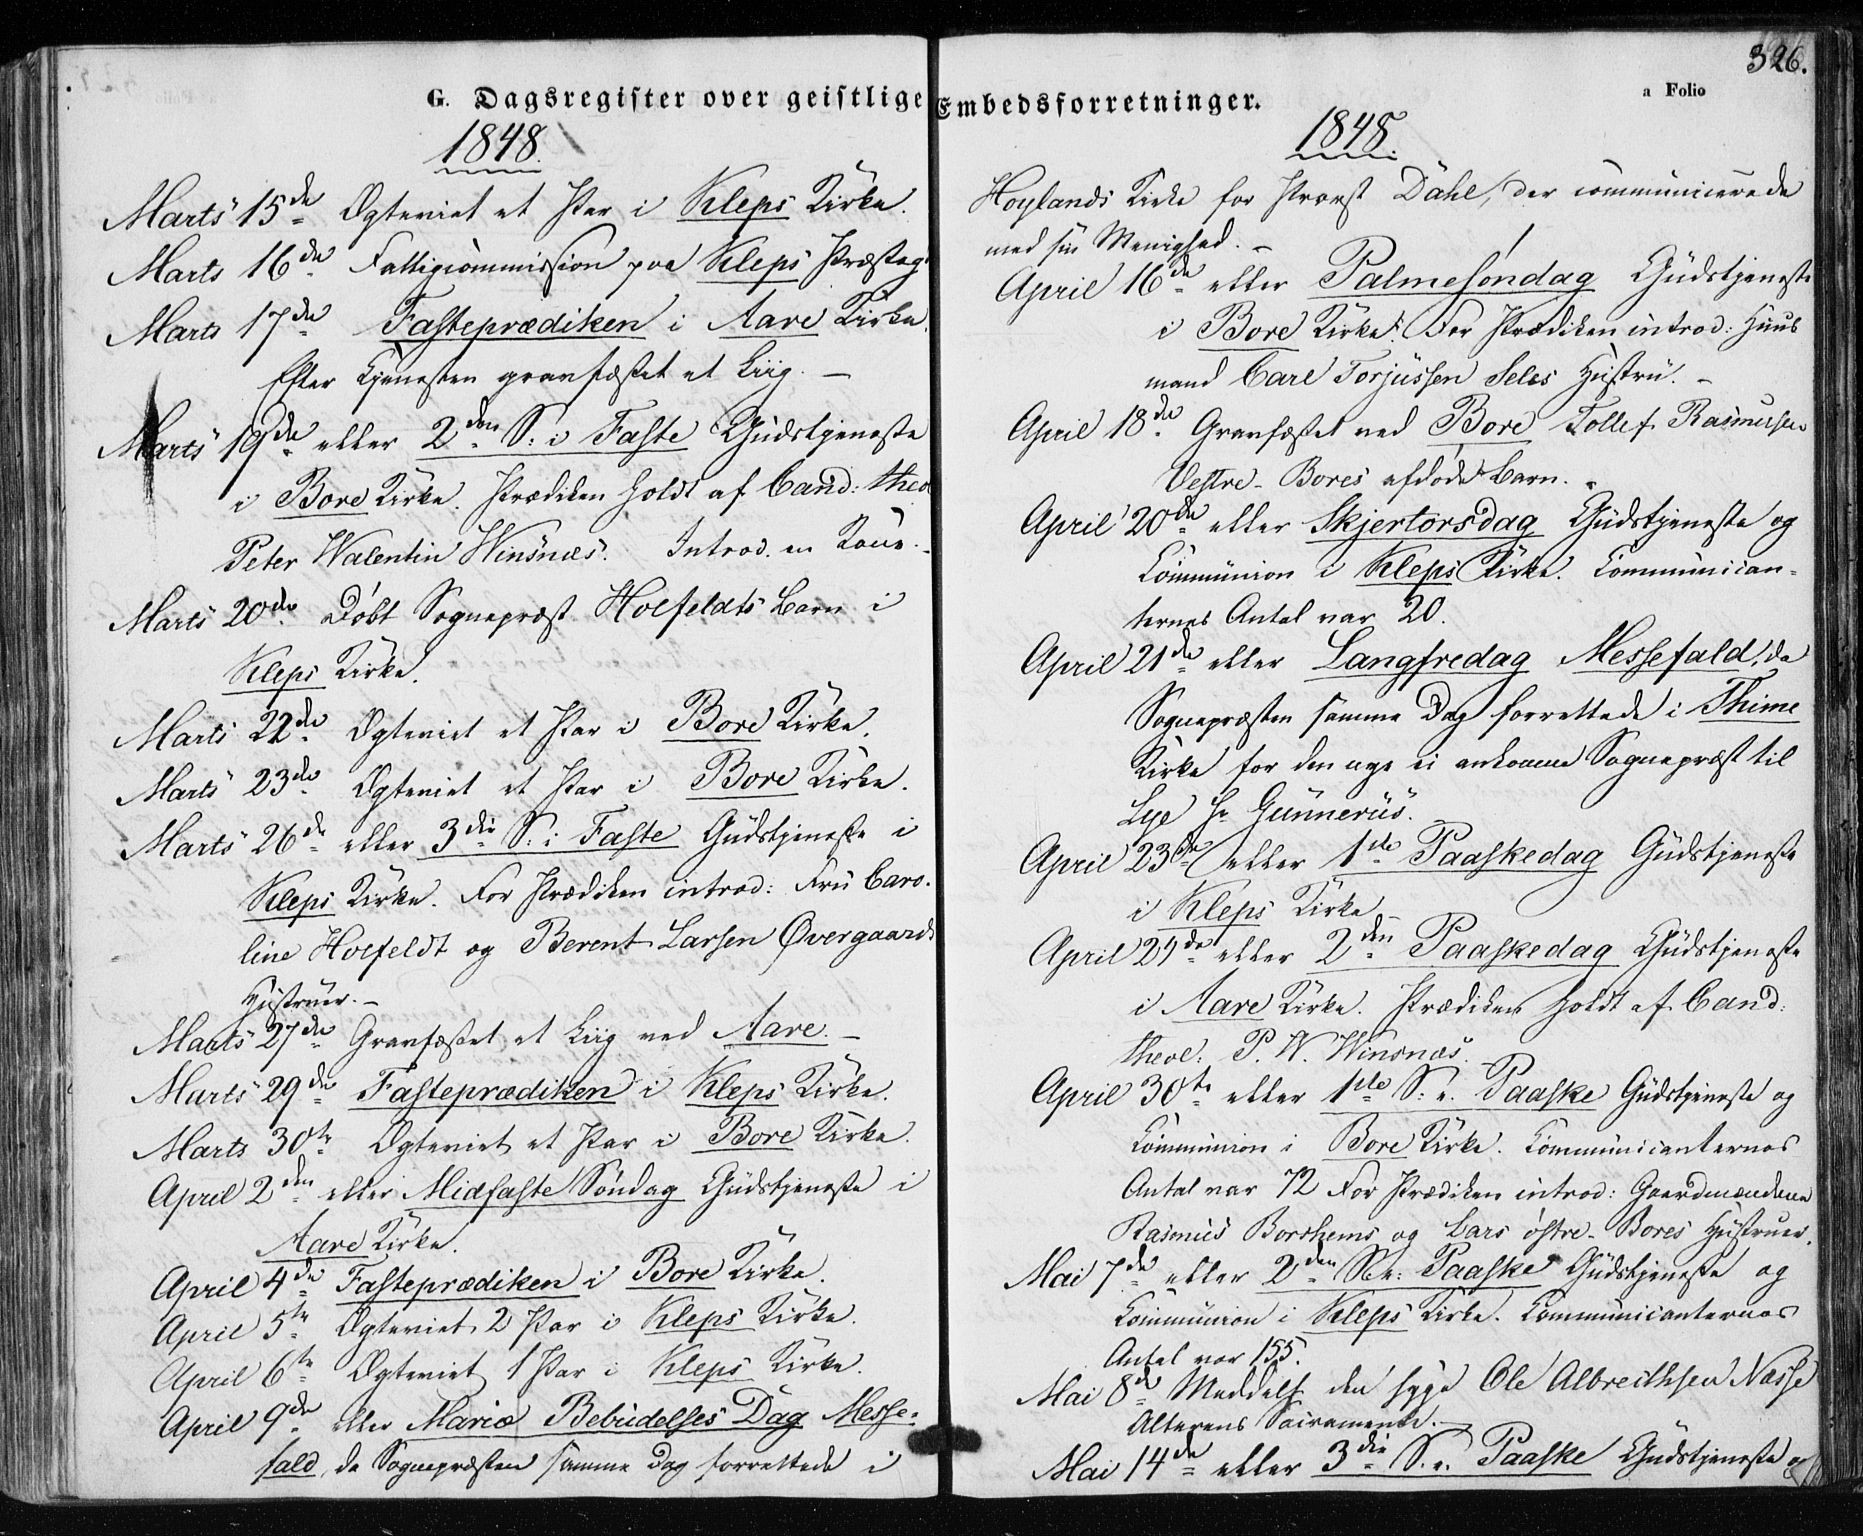 G. Dagsregister over geistlige
1848.
Marts 15de Ægteviet et Par i Kleps Kirke.
Marts 16de Fattigcommission paa Kleps Præsteg.
Marts 17de Fasteprædiken i Aare Kirke.
Efter Tjenesten gravfæstet et Liig. –
Marts 19de eller 2den S. i Faste Gudstjeneste
i Bore Kirke. Prædiken holdt af Cand: theol
Peter Walentin Winsnæs. Introd. en Kone. –
Marts 20de Døbt Sognepræst Holfeldts Barn i
Kleps Kirke.
Marts 22de Ægteviet et Par i Bore Kirke.
Marts 23de Ægteviet et Par i Bore Kirke.
Marts 26de eller 3die S. i Faste Gudstjeneste i
Kleps Kirke. For Prædiken introd: Fru Caro-
line Holfeldt og Berent Larsen Øvergaards
Hustruer. –
Marts 27de Gravfæstet et Liig ved Aare. –
Marts 29de Fasteprædiken i Kleps Kirke.
Marts 30te Ægteviet et Par i Bore Kirke.
April 2den eller Midfaste Søndag Gudstjeneste i
Aare Kirke.
April 4de Fasteprædiken i Bore Kirke.
April 5te Ægteviet 2 Par i Kleps Kirke.
April 6te Ægteviet 1 Par i Kleps Kirke.
April 9de eller Mariæ Bebudelses Dag Messe-
fald, da Sognepræsten samme Dag forrettede i
326.
Embedsforretninger.
a Folio
1848.
Hoylands Kirke for Provst Dahl, der communicerede
med sin Menighed. –
April 16de eller Palmesøndag Gudstjeneste
i Bore Kirke. For Prædiken introd: Huus
mand Carl Torjussen Seles Hustru. –
April 18de Gravfæstet ved Bore Tollef Rasmussen
Vestre-Bores afdøde Barn. –
April 20de eller Skjertorsdag Gudstjeneste og
Communion i Kleps Kirke. Communican-
ternes Antal var 20.
April 21de eller Langfredag Messefald, da
Sognepræsten samme Dag forrettede i Thime
Kirke for den nye ei ankomne Sognepræst til
Lye Hr Gunnerus.
April 23de eller 1ste Paaskedag Gudstjeneste
i Kleps Kirke –
April 24de eller 2den Paaskedag Gudstjeneste
i Aare Kirke. Prædiken holdt af Cand:
theol: P. W. Winsnæs.
April 30te eller 1ste S. e. Paaske Gudstjeneste og
Communion i Bore Kirke. Communicanternes
Antal var 72 For Prædiken introd: Gaardmændene
Rasmus Borshems og Lars østre-Bores Hustruer.
Mai 7de eller 2den S. e. Paaske Gudstjeneste og
Communion i Kleps Kirke. Communicanternes
Antal var 155.
Mai 8de Meddelt den syge Ole Albrecthsen Næsse
Alterens Sacramente. –
Mai 14de eller 3die S. e. Paaske Gudstjeneste og